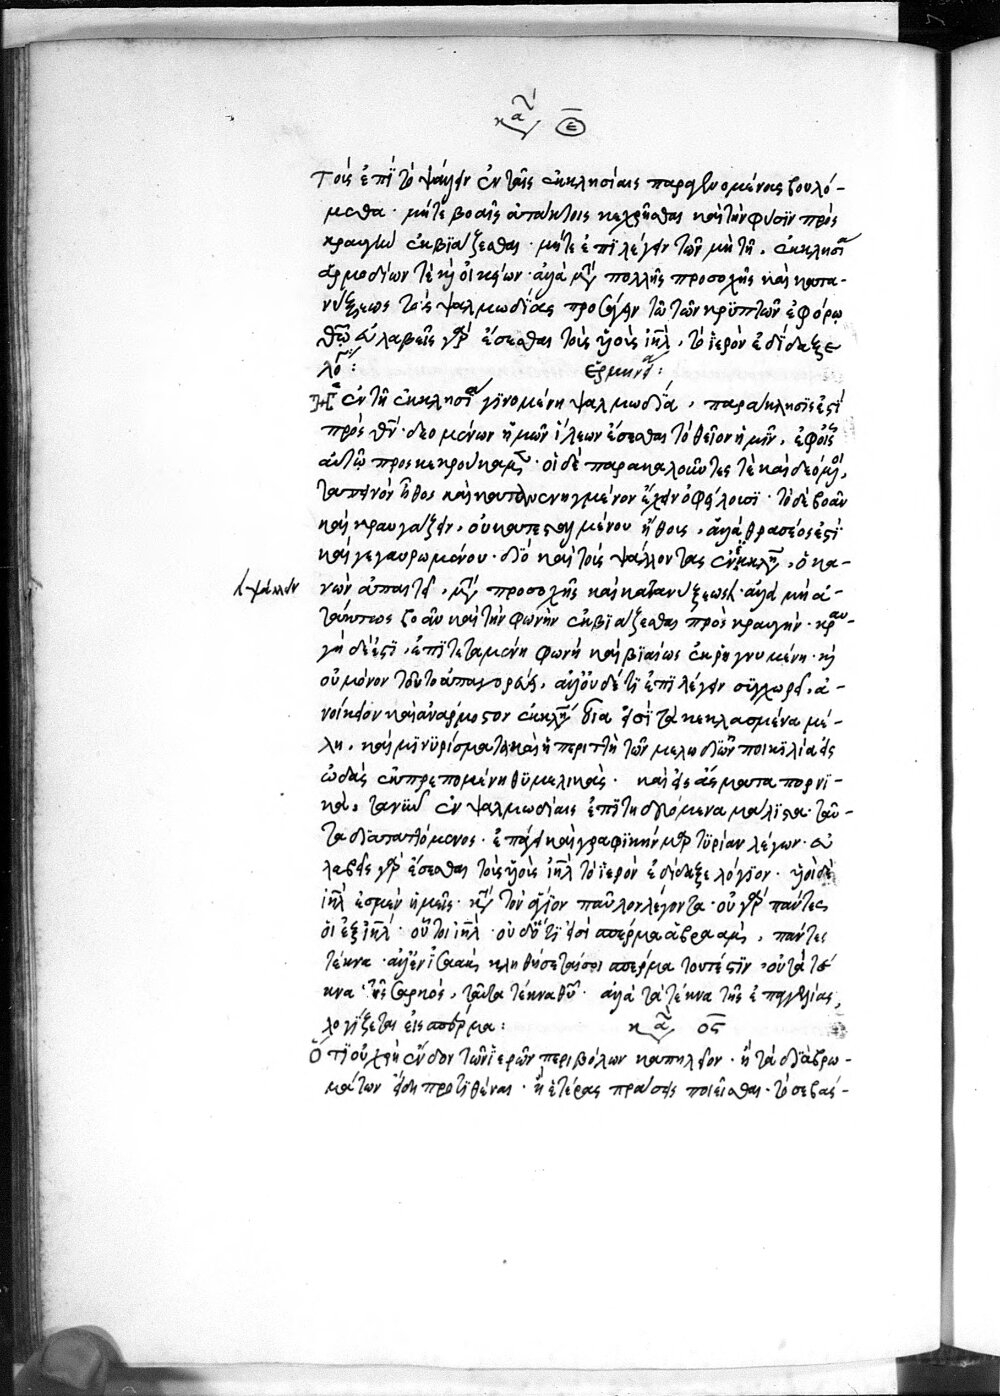 κα οε
Τοὺς ἐπὶ τὸ ψάλλειν ἐν ταῖς ἐκκλησίαις παραγινομένους βουλό-
μεθα· μήτε βοαῖς ἀτάκτοις κεχρῆσθαι καὶ τὴν φύσϊν πρὸς
κραυγὴν ἐκβϊάζεσθαι· μήτε ἐπιλέγειν τῶν μὴ τῆ ἐκκλησία
ἁρμοδίων τὲ κỳ οἰκείων· ἀλλὰ μετὰ πολλῆς προσοχῆς καὶ κατα-
νύξεως τὰς ψαλμωδίας προσάγειν τῶ τῶν κρϋπτῶν ἐφόρω
θῶ εὐλαβεῖς γὰρ ἔσεσθαι τοὺς ϋἱοὺς ἰηλ, τὸ ἱερὸν ἐδίδαξε
λόγϊον: Ἑρμηνεία:
Ἡ ἐν τῆ ἐκκλησία γϊνομένη ψαλμωδΐα, παράκλησϊς ἐστὶ
πρὸς θν· δεομένων ἡμῶν ἵλεων ἔσεσθαι τὸ θεῖον ἡμῖν, ἐφ οἷς
αὐτῶ προσκεκρούκαμεν· οἱ δὲ παρακαλοῦντες τὲ καὶ δεόμενοι,
ταπεινὸν ἦθος καὶ κατανενυγμένον ἔχειν ὀφείλουσϊ· τὸ δὲ βοᾶν
καὶ κραυγάζειν, οὐ κατεσταλμένου ἤθους, ἀλλὰ θρασέος ἐστὶ
καὶ γεγαυρωμένου· διὸ καὶ τοὺς ψάλλοντας ἐν ἐκκλησία, ὁ κα-
νὼν ἀπαιτεῖ, μετὰ προσοχῆς καὶ κατανύξεως· ἀλλὰ μὴ ἀ-
τάκτως βοᾶν καὶ τὴν φωνὴν ἐκβϊάζεσθαι πρὸς κραυγήν· κραυ-
γὴ δὲ ἐστϊ, ἐπϊτεταμένη φωνὴ καὶ βϊαίως ἐκρηγνυμένη· κỳ
οὐ μόνον τοῦτο ἀπαγορεύει, ἀλλ οὐδέ τϊ ἐπϊλέγειν σϋγχωρεῖ, ἀ-
νοίκειον καὶ ἀνάρμοστον ἐκκλησία οἷα εἰσὶ τὰ κεκλασμένα μέ-
λη, καὶ μϊνϋρίσματα καὶ ἡ περιττὴ τῶν μελωδϊῶν ποικϊλία εἰς
ὠδὰς ἐκτρεπομένη θϋμελικὰς· καὶ εἰς ἄσματα πορνϊ-
κὰ, τανῦν ἐν ψαλμωδίαις ἐπϊτηδευόμενα μάλϊστα· ταῦ-
τα δϊαταττόμενος· ἐπάγει καὶ γραφϊκὴν μαρτϋρίαν λέγων· εὐ
λαβεῖς γὰρ ἔσεσθαι τοὺς ϋἱοὺς ἰηλ τὸ ἱερὸν ἐδίδαξε λόγϊον· ϋἱοὶ δὲ
ἰηλ ἐσμὲν ἡμεῖς· κατὰ τὸν ἅγϊον παῦλον λέγοντα· οὐ γὰρ πάντες
οἱ ἐξ ἰηλ· οὗτοι ἰηλ· οὐδ ὅτϊ εἰσὶ σπέρμα ἀβραὰμ, πάντες
τέκνα· ἀλλ ἐν ἰσαὰκ κληθήσεταί σοι σπέρμα τουτέστϊν, οὐ τὰ τέ
κνα τῆς σαρκὸς, ταῦτα τέκνα θυ· ἀλλὰ τὰ τέκνα τῆς ἐπαγγελίας,
λογϊζεται εἰς σπέρμα: κα ος
Ὅτϊ οὐ χρὴ ἔνδον τῶν ἱερῶν περιβόλων καπηλεῖον· ἢ τὰ διὰ βρω-
μάτων εἴδη προτϊθέναι· ἢ ἑτέρας πράσεις ποιεῖσθαι· τὸ σεβάσ-